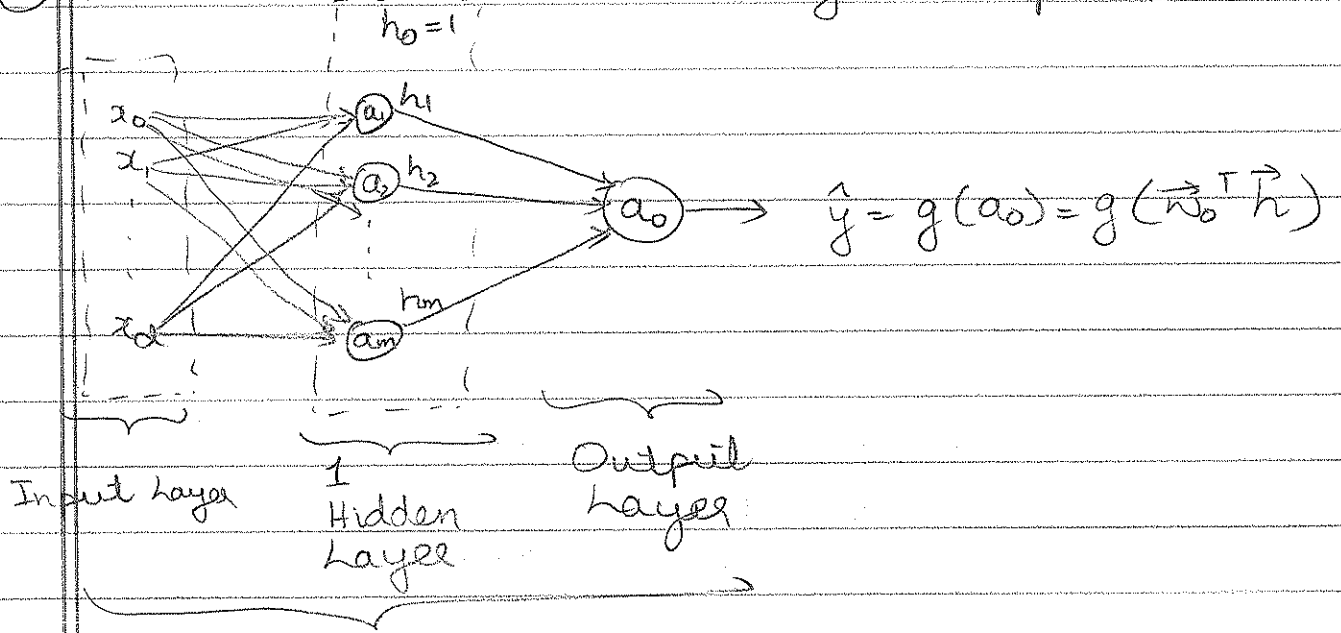 h₀=1
x₀
x₁
x_d
a₁ h₁
a₂ h₂
a_m h_m
a₀
ŷ = g(a₀) = g(w⃗₀ᵀ h⃗)
Input Layer
1
Hidden
Layer
Output
Layer